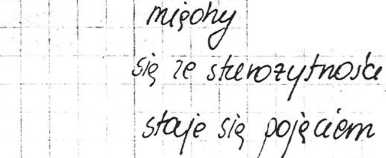 mięohy
się ze starożytności
staje się pojęciem